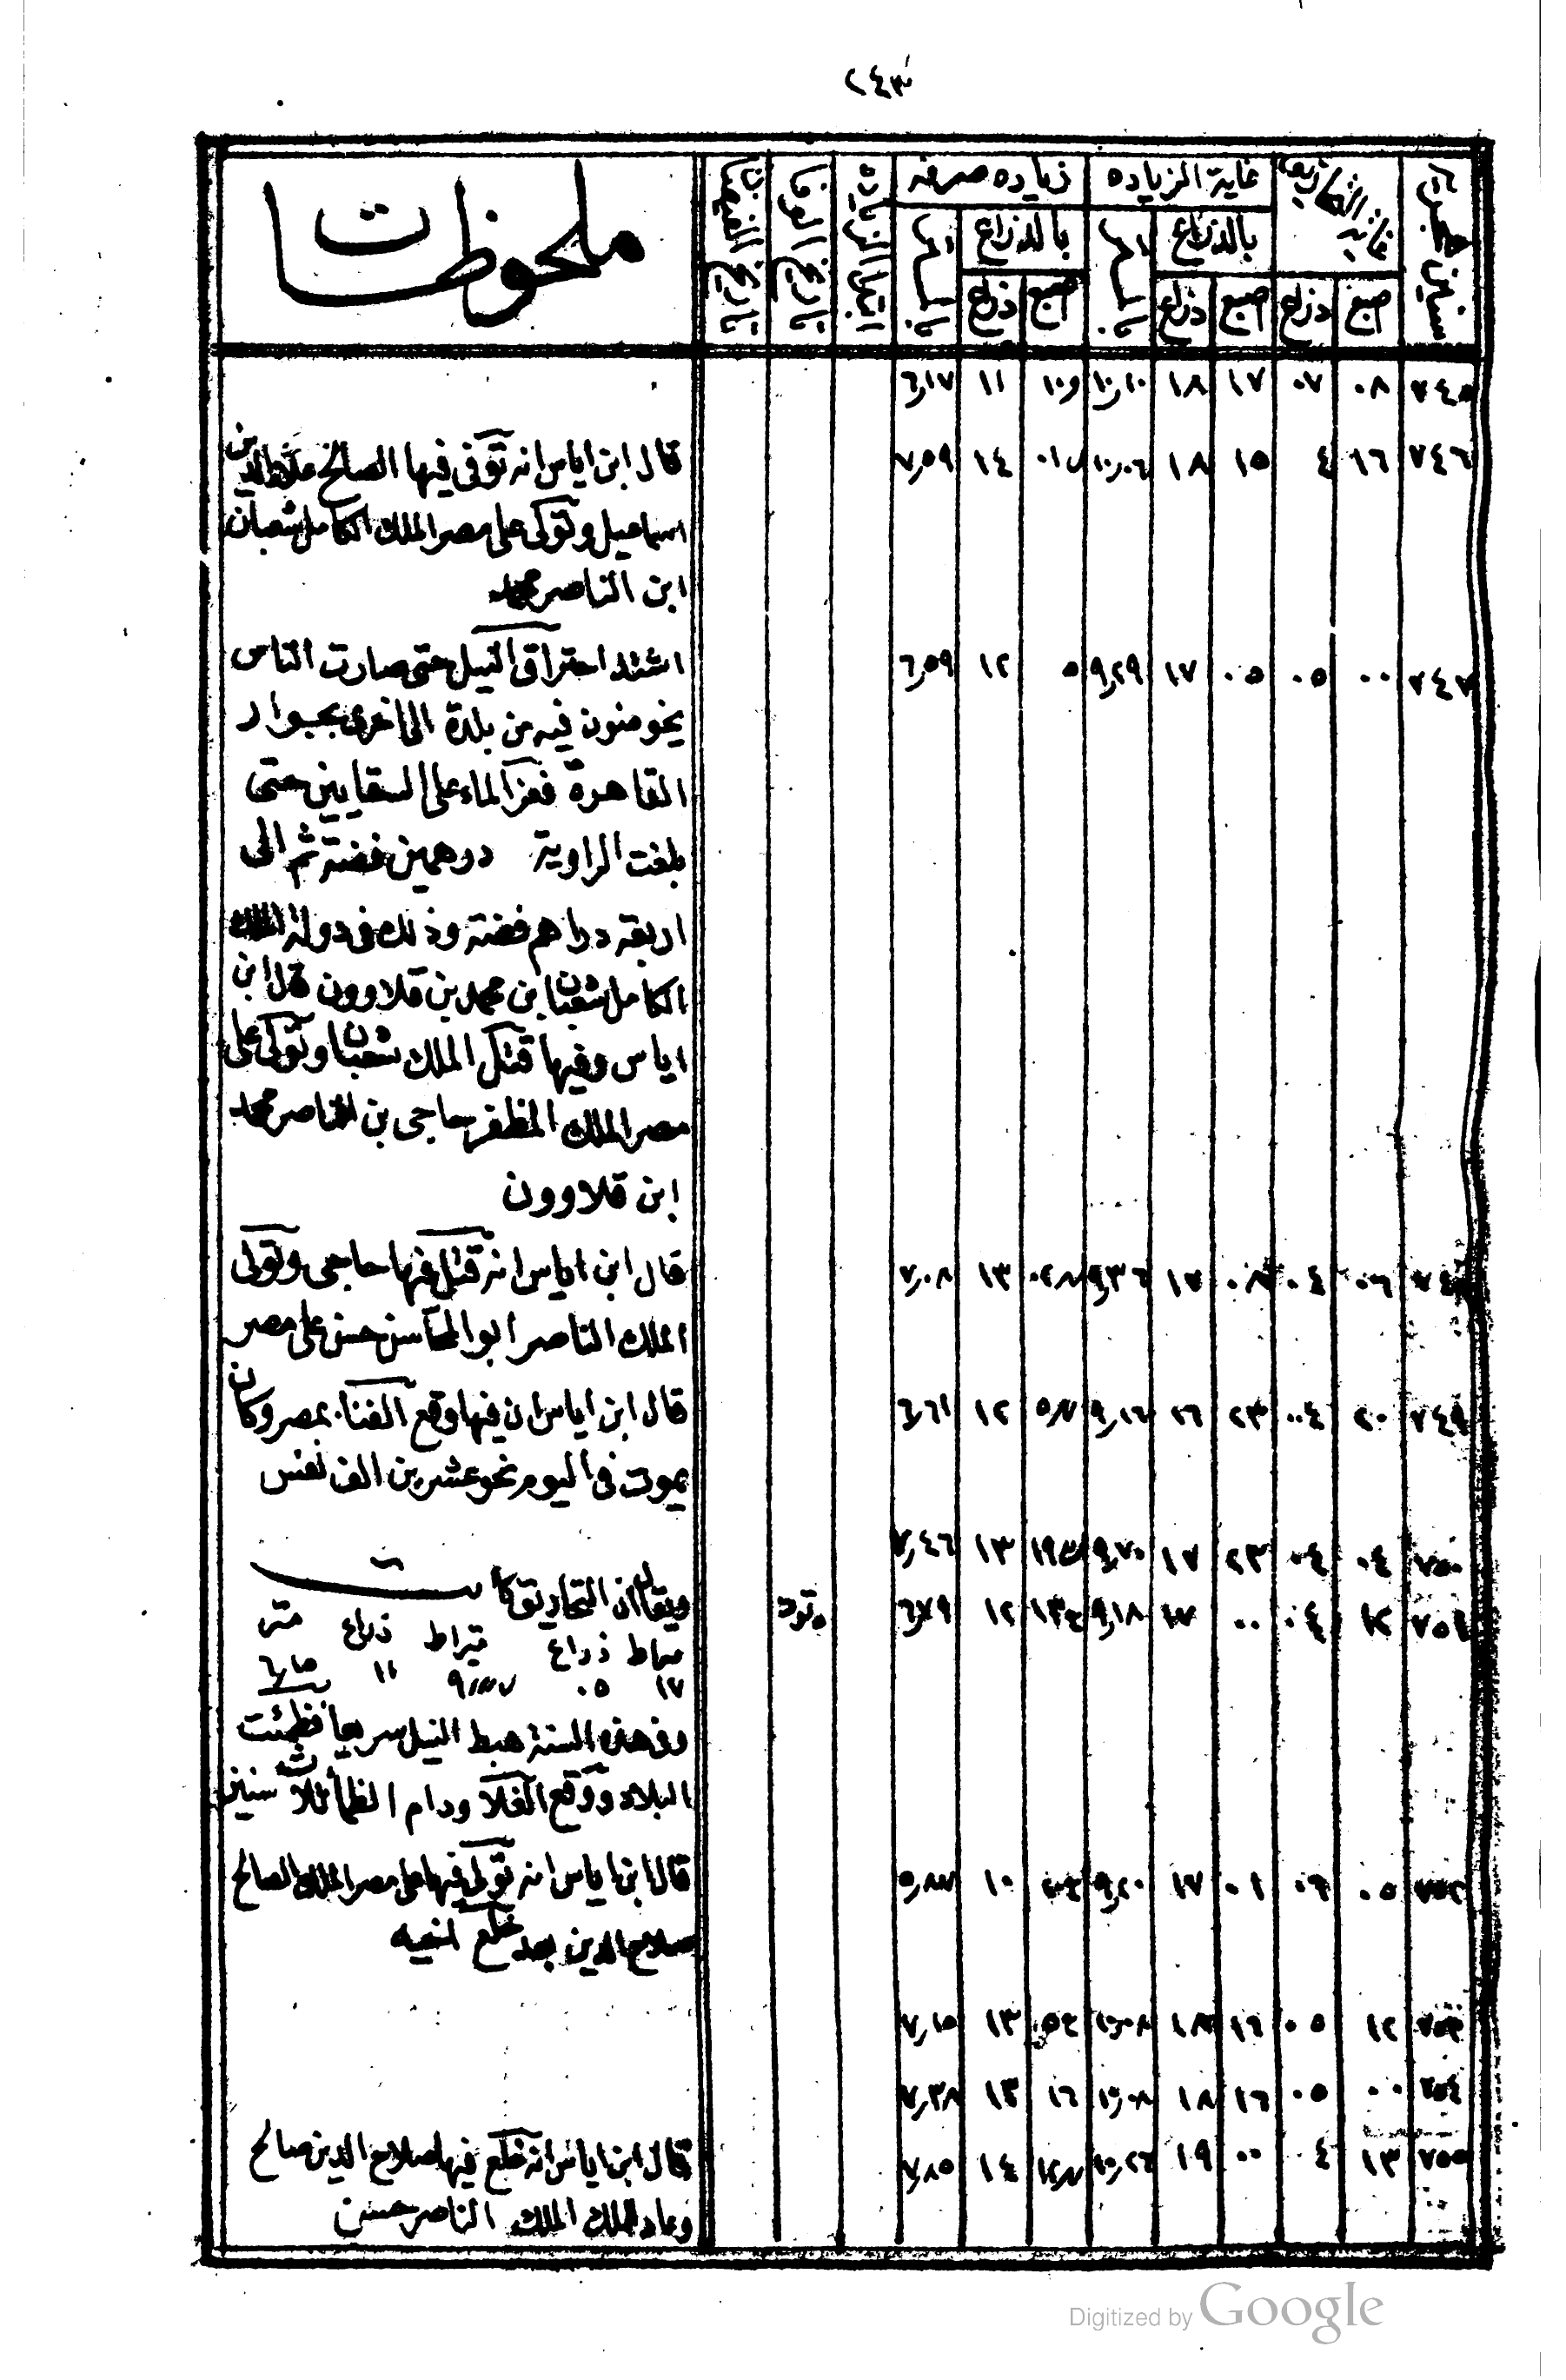 ٢٤٣
سنين هجرية | غاية التحاريق | غاية الزيادة | زيادة صرفه | ابتدا الزيادة | تاريخ الوفا | تاريخ | ملحوظات
بالذراع | بالذراع
اصبع | ذراع | اصبع | ذراع | اصبع | ذراع
٧٤٥ ٠٨ ٠٧ ١٧ ١٨ ١٠٫١٠ ١١ ٦٫١٧
٧٤٦ ١٦ ٤ ١٥ ١٨ ١٠٫٠٦ ١٤ ٧٫٥٩ قال ابن اياس انه توفى فيها الصالح علاء الدين
اسماعيل وتولى على مصر الملك الكامل شعبان
ابن الناصر محمد
٧٤٧ ٠٠ ٠٥ ٠٥ ١٧ ٩٫٢٩ ٥ ١٢ ٦٫٥٩ اشتد احتراق النيل حتى صارت الناس
يخوضون فيه من بلدة الى اخرى بجوار
القاهرة فعز الماء على السقايين حتى
بلغت الراوية درهمين فضة ثم الى
اربعة دراهم فضة وذلك فى دولة الملك
الكامل شعبان بن محمد بن قلاوون قال ابن
اياس وفيها قتل الملك شعبان وتولى على
مصر الملك المظفر حاجى بن الناصر محمد
ابن قلاوون
٠٦ ٠٤ ٠٨ ١٧ ٩٫٣٦ ١٣ ٧٫٠٨ قال ابن اياس انه قتل فيها حاجى وتولى
الملك الناصر ابو المحاسن حسن على مصر
٧٤٩ ٢٠ ٠٤ ٢٣ ١٦ ٩٫١٦ ١٢ ٦٫٦١ قال ابن اياس ان فيها وقع الفنا بمصر وكان
يموت فى اليوم نحو عشرين الف نفس
٧٥٠ ٠٤ ٠٤ ٢٣ ١٧ ٩٫٧٠ ١٩ ١٣ ٧٫٤٦
ويقال ان التحاريق كانت
٧٥١ ١٢ ٠٤ ٠٠ ١٧ ٩٫١٨ ١٢ ٦٫٧٩
قيراط ذراع قيراط ذراع متر
١٧ ٠٥ ١١
وفى هذه السنة هبط النيل سريعا فظمئت
البلاد ووقع الغلا ودام الظمأ ثلاث سنين
٧٥٢ ٠٥ ٠٦ ٠١ ١٧ ٩٫٢٠ ١٠ ٥٫٨٧ قال ابن اياس انه تولى فيها على مصر الملك الصالح
صلاح الدين بعد خلع اخيه
٧٥٣ ١٢ ٠٥ ١٦ ١٨ ١٠٫٠٨ ١٣ ٧٫١٥
٧٥٤ ٠٠ ٠٥ ١٦ ١٨ ١٠٫٠٨ ١٦ ١٣ ٧٫٣٨
٧٥٥ ١٣ ٤ ٠٠ ١٩ ١٠٫٢٦ ١٤ ٧٫٨٥ قال ابن اياس انه خلع فيها صلاح الدين صالح
وعاد للملك الملك الناصر حسن
Digitized by Google